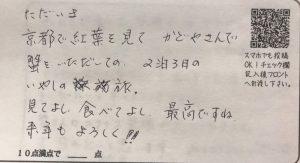 ただいま
京都で紅葉を見て かどやさんで
蟹をいただいての、2泊3日の
いやしの 旅。
見てよし 食べてよし 最高ですね
来年も よろしく!!!
10点満点で 点
スマホでも投稿
OK!チェック欄
記入後フロント
へお渡し下さい。